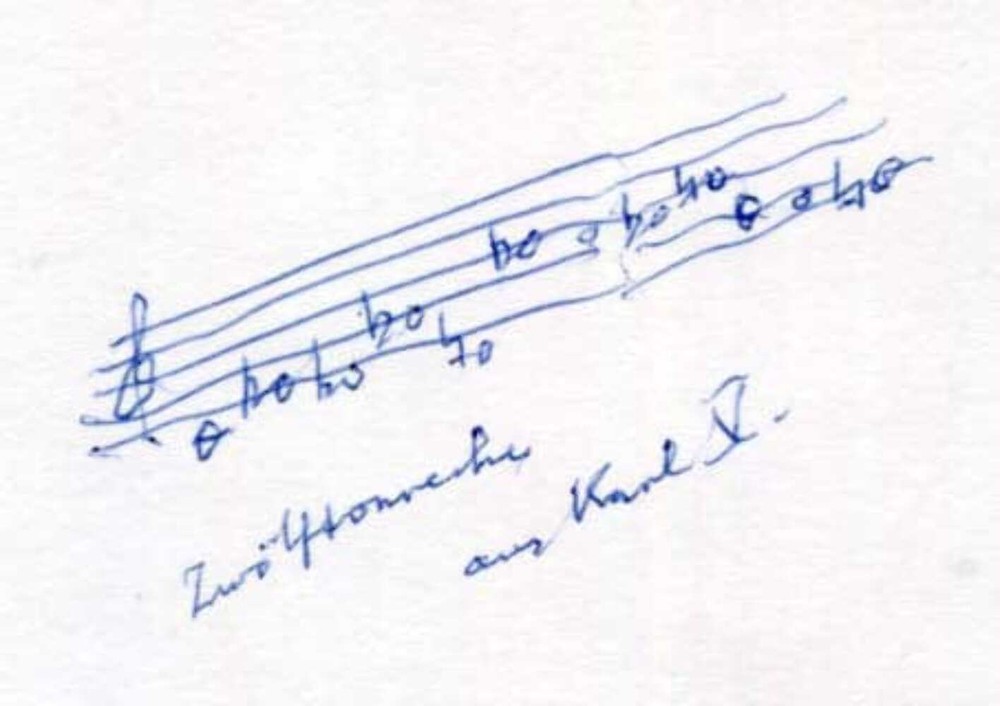 Zwölftonreihe
aus Karl V.